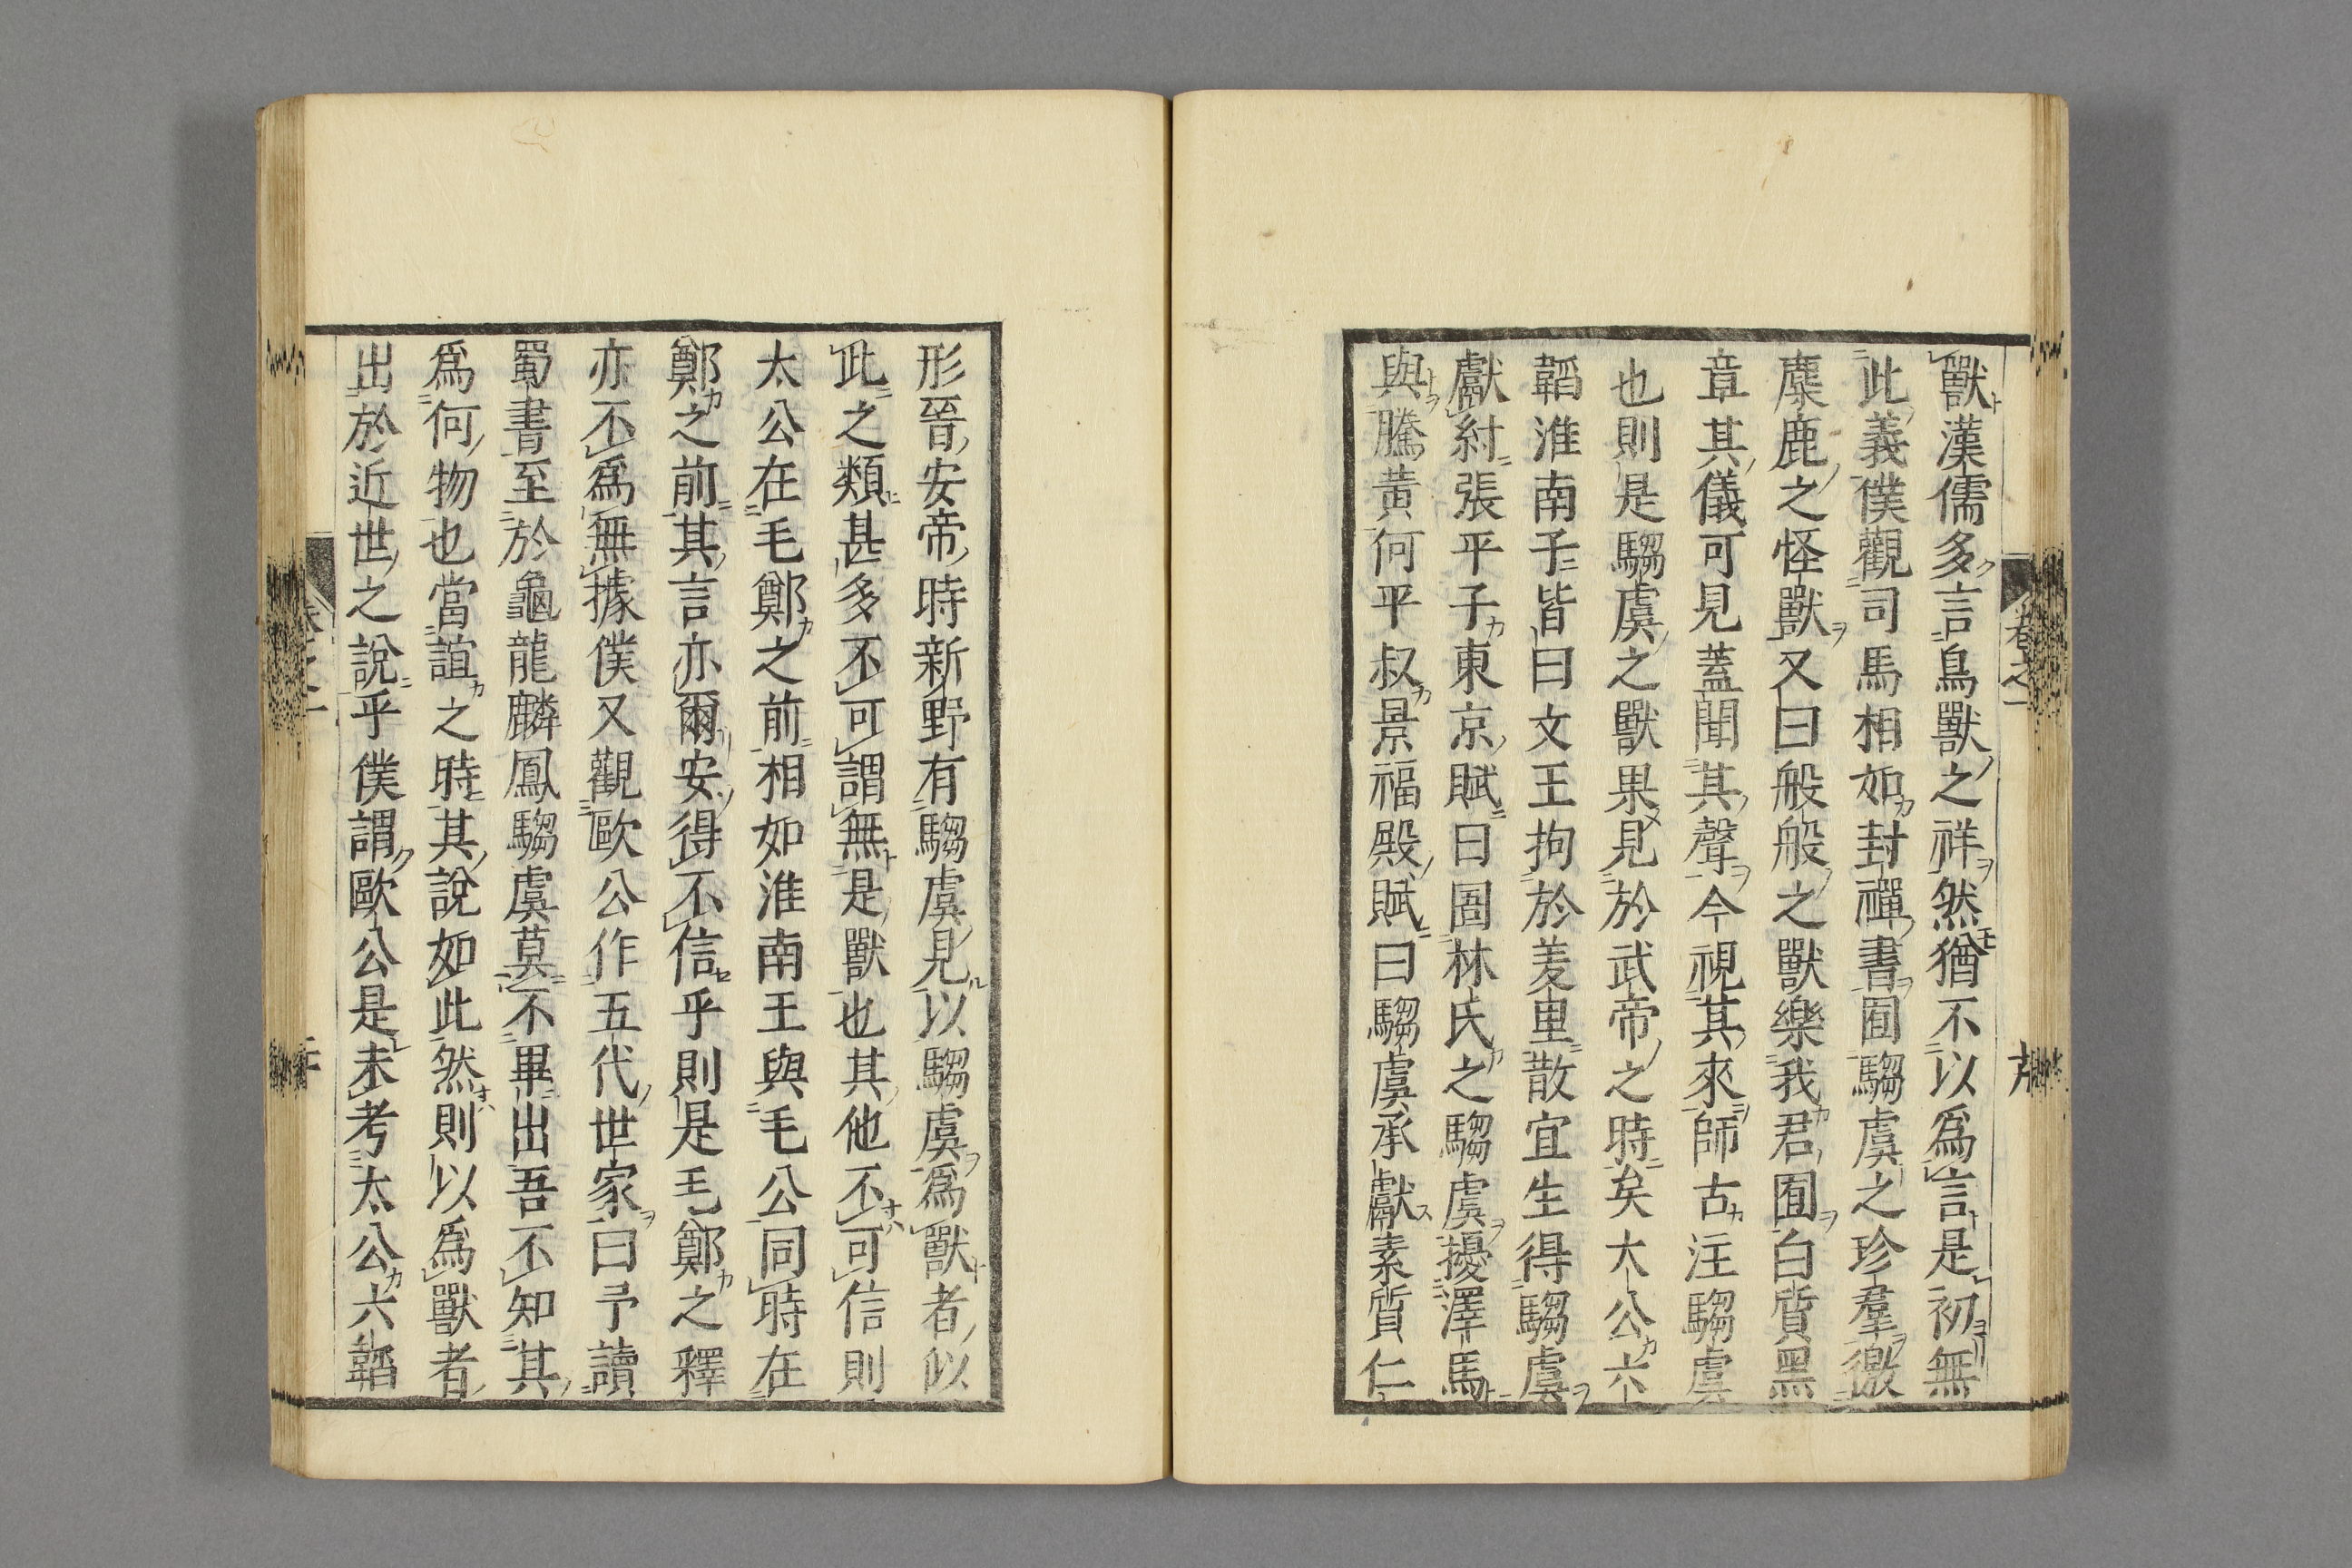 獸漢儒多言鳥獸之祥然猶不以爲言是初無
此義僕觀司馬相如封禪書囿騶虞之珍羣徼
麋鹿之怪獸又曰般般之獸樂我君囿白質黑
章其儀可見蓋聞其聲今視其來師古注騶虞
也則是騶虞之獸果見於武帝之時矣大公六
韜淮南子皆曰文王拘於羑里散宜生得騶虞
獻紂張平子東京賦曰圄林氏之騶虞擾澤馬
與騰黃何平叔景福殿賦曰騶虞承獻素質仁
形晉安帝時新野有騶虞見以騶虞爲獸者似
此之類甚多不可謂無是獸也其他不可信則
太公在毛鄭之前相如淮南王與毛公同時在
鄭之前其言亦爾安得不信乎則是毛鄭之釋
亦不爲無據僕又觀歐公作五代世家曰予讀
蜀書至於龜龍麟鳳騶虞莫不畢出吾不知其
爲何物也當誼之時其說如此然則以爲獸者
出於近世之說乎僕謂歐公是未考太公六韜
卷之一